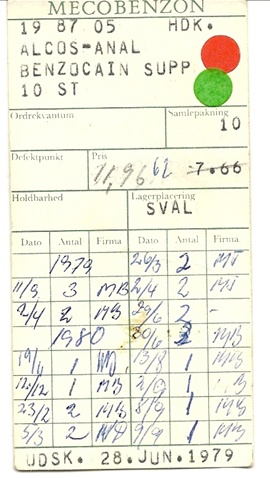 MECOBENZON
19 87 05 HDK.
ALCOS-ANAL
BENZOCAIN SUPP
10 ST
Ordrekvantum Samlepakning
10
Defektpunkt Pris
11,96 62 7.66
Holdbarhed Lagerplacering
SVAL
Dato Antal Firma Dato Antal Firma
1979 26/3 2
11/9 3 MB 2/4 2
2/4 2 MB 29/6 2 -
1980 20/6 2 MB
19/4 1 13/8 1 MB
12/12 1 MB 2/9 1
23/2 2 MB 8/9 1 MB
3/3 2 9/9 1 MB
UDSK. 28.JUN.1979